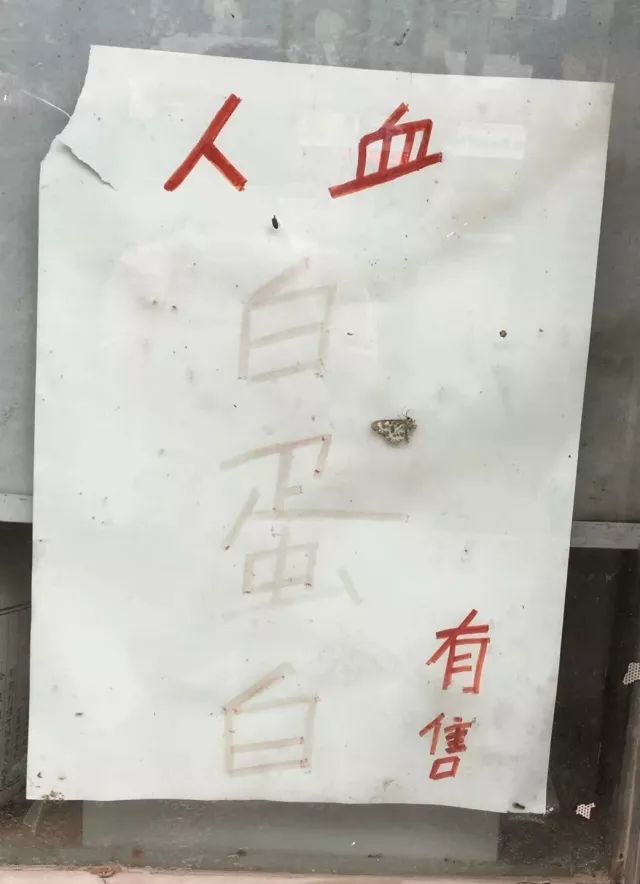 人血
白
蛋
白
有
售